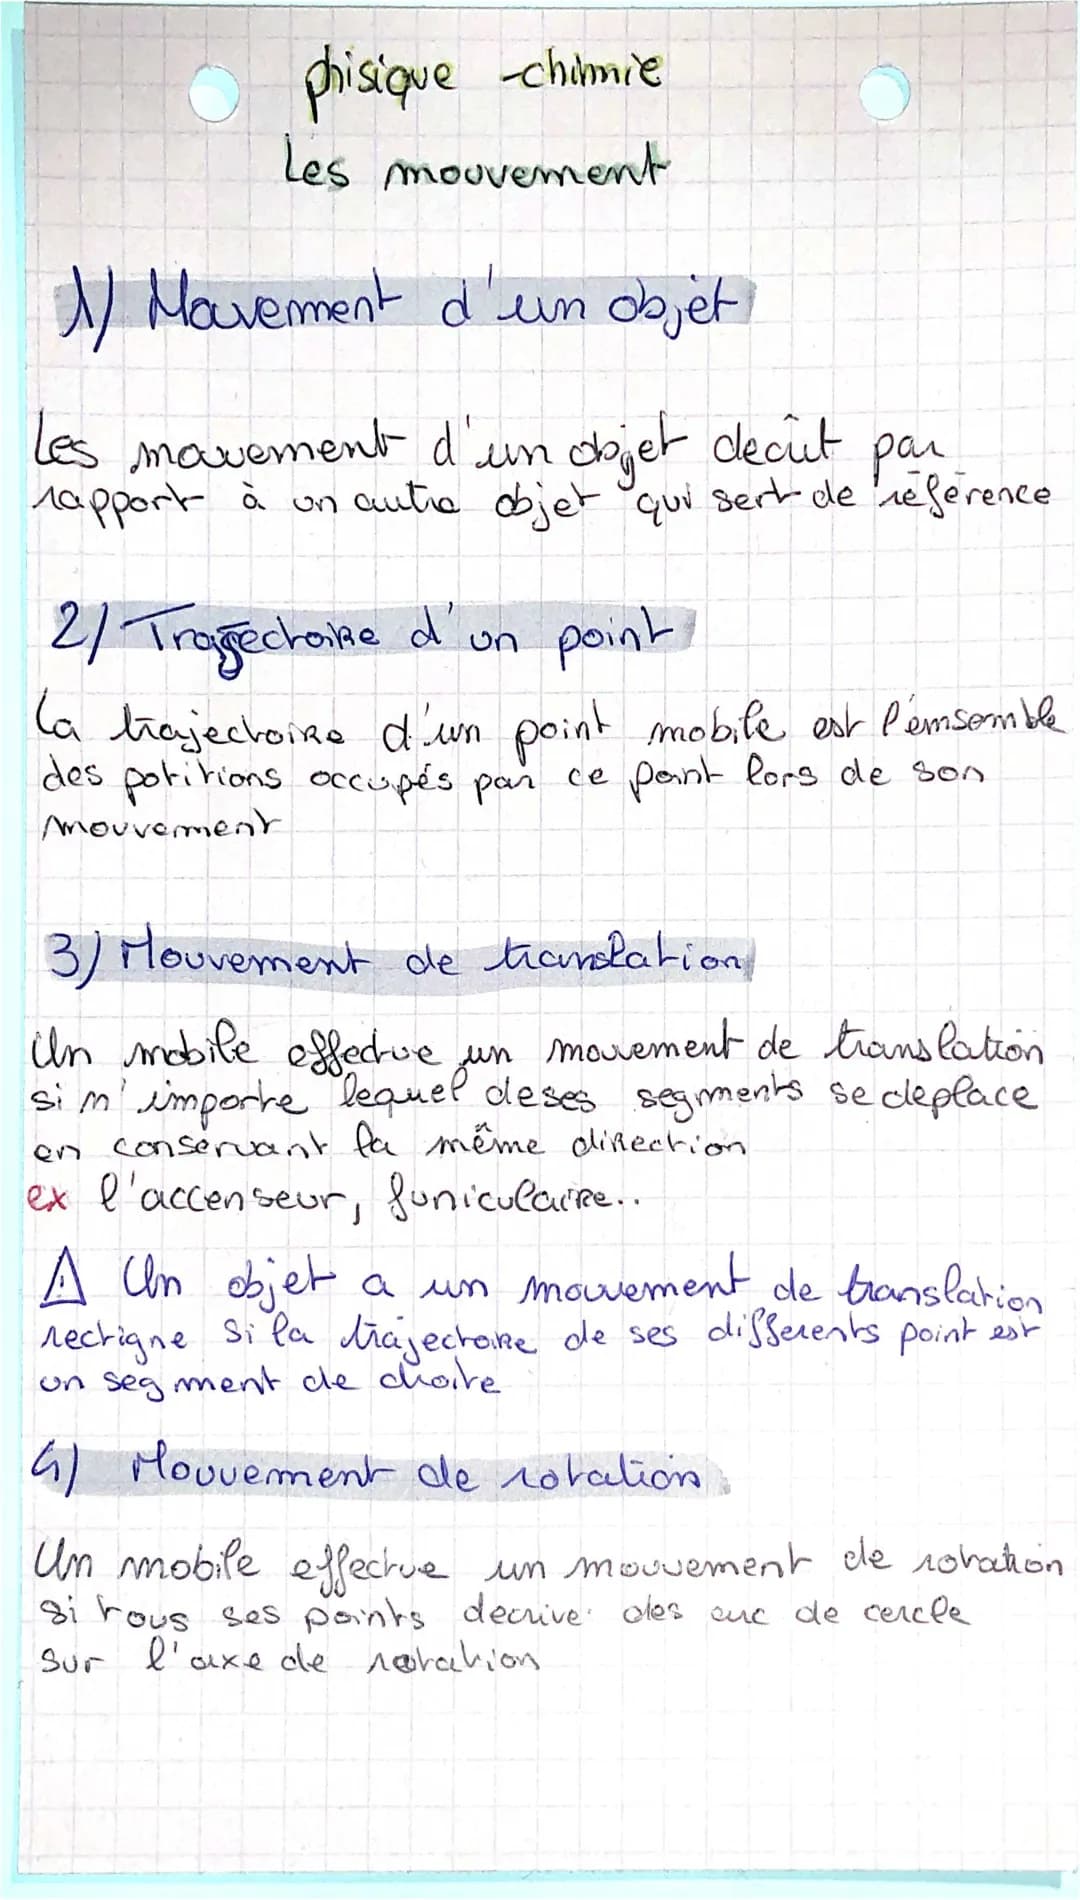 phisique -chimie
Les mouvement
1) Mouvement d'un objet
Les mouvement d'un objet decrit par
rapport à un autre objet qui sert de référence
2) Trajectoire d'un point
La trajectoire d'un point mobile est l'emsemble
des potitions occupés par ce point lors de son
mouvement
3) Mouvement de translation
Un mobile effectue un mouvement de translation
si n'importe lequel de ses segments se deplace
en conservant la même direction
ex l'accenseur, funiculaire..
⚠ Un objet a un mouvement de translation
rectigne si la trajectoire de ses differents point est
un segment de droite
4) Mouvement de rotation
Un mobile effectue un mouvement de rotation
si tous ses points decrive des arc de cercle
sur l'axe de rotation